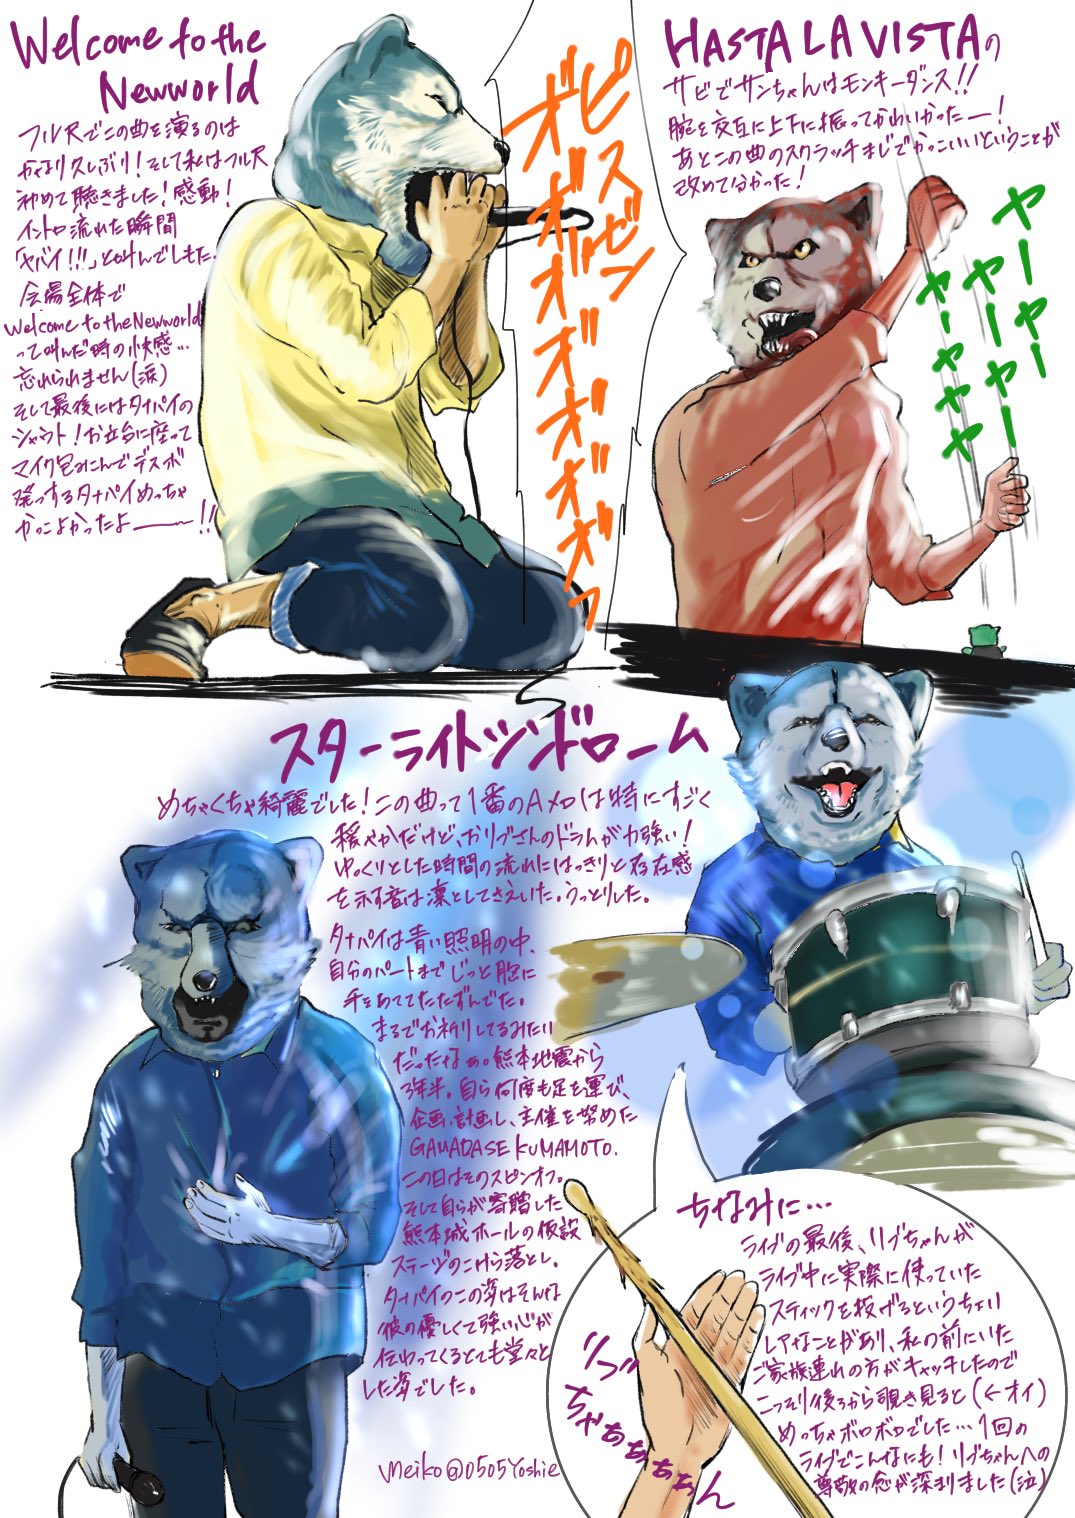 Welcome to the
Newworld
フル尺でこの曲を演るのは
かなり久しぶり！そして私はフル尺
初めて聴きました！感動！
イントロ流れた瞬間
「ヤバイ!!!」と叫んでしもた.
会場全体で
Welcome to the Newworld
って叫んだ時の快感…
忘れられません(涙)
そして最後にはタナパイの
シャウト！お立台に座って
マイク包みこんでデスボ
発っするタナパイめっちゃ
かっこよかったよ――!!
ピスゼン
ボオボオボオボオボオボオッ
HASTA LA VISTAの
サビでサンちゃんはモンキーダンス!!
腕を交互に上下に振ってかわいかったー！
あとこの曲のスクラッチまじでかっこいいということが
改めて分かった！
ヤーヤー
ヤーヤー
ヤーヤヤヤ
スターライトシンドローム
めちゃくちゃ綺麗でした！この曲って1番のAメロは特にすごく
穏やかだけど、カリブさんのドラムが力強い！
ゆっくりとした時間の流れにはっきりと存在感
を示す音は凛としてさえいた。うっとりした。
タナパイは青い照明の中、
自分のパートまでじっと胸に
手をあててたたずんでた。
まるでお祈りしてるみたい
だったなぁ。熊本地震から
3年半。自ら何度も足を運び、
企画、計画し、主催を努めた
GAMADASE KUMAMOTO.
この日はそのスピンオフ。
そして自らが寄贈した
熊本城ホールの仮設
ステージのこけら落とし。
タナパイのこの姿はそんな
彼の優しくて強い心が
伝わってくるとても堂々と
した姿でした。
meiko@0505Yoshie
ちなみに…
ライブの最後、リブちゃんが
ライブ中に実際に使っていた
スティックを投げるというちょい
レアなことがあり、私の前にいた
ご家族連れの方がキャッチしたので
こっそり後ろから覗き見ると(←オイ)
めっちゃボロボロでした…1回の
ライブでこんなにも！リブちゃんへの
尊敬の念が深まりました(泣)
リブッ
ちゃぁぁぁぁん